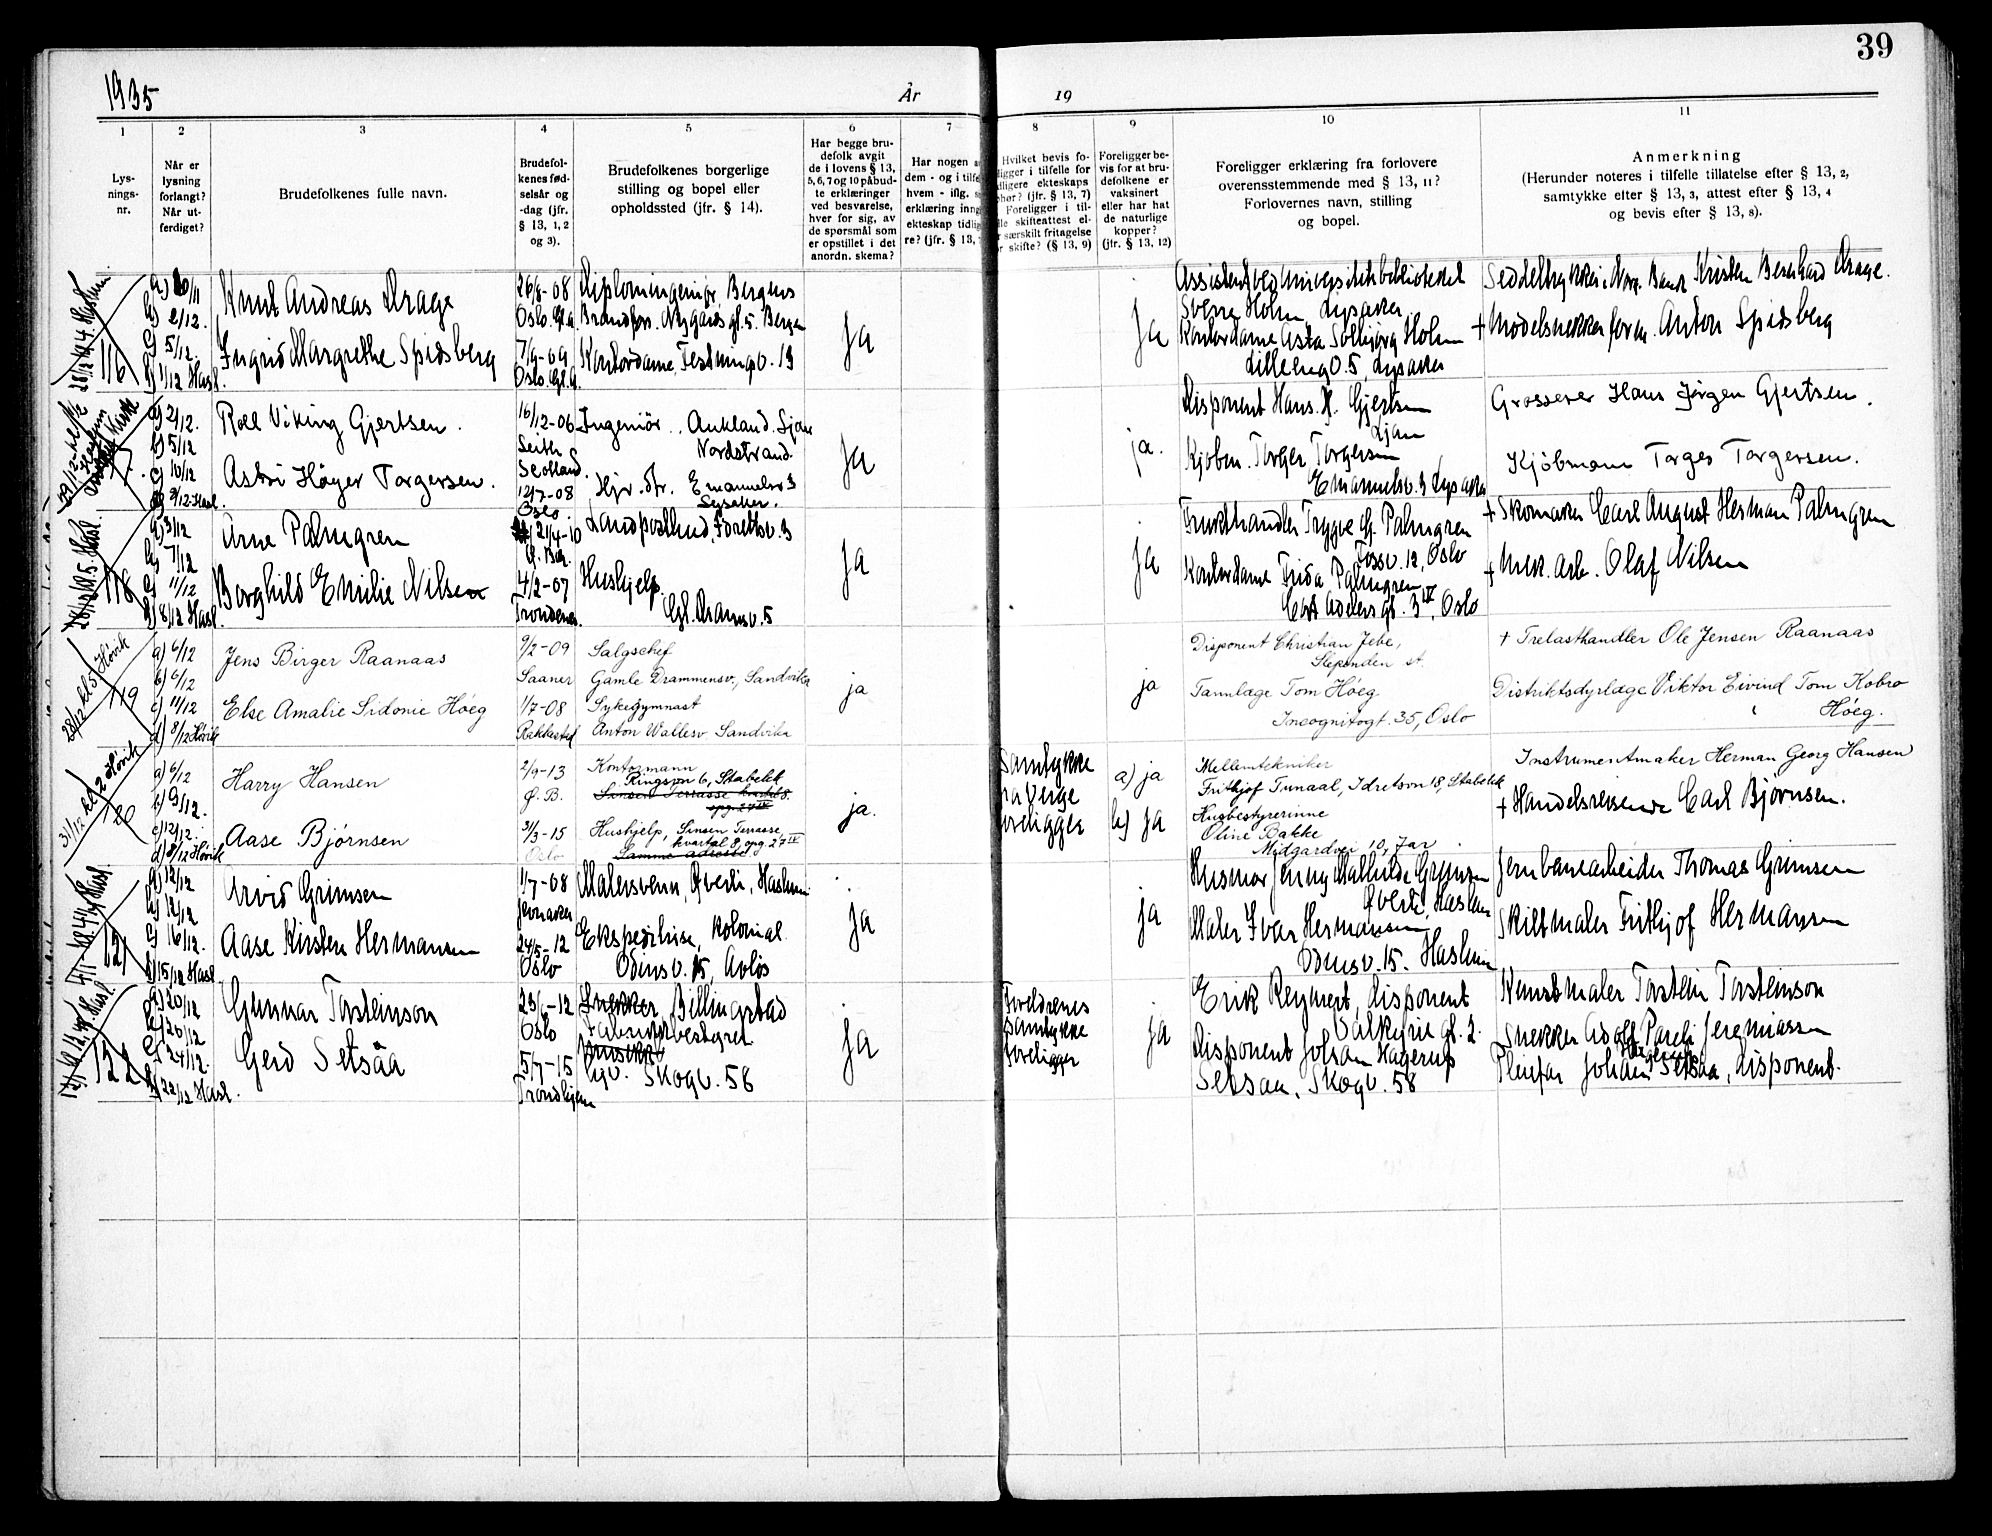 39
1935
År
19
1
2
3
4
5
6
7
8
9
10
11
Lys-
nings-
nr.
Når er
lysning
forlangt?
Når ut-
ferdiget?
Brudefolkenes fulle navn.
Brudefol-
kenes fød-
selsår og
-dag (jfr.
§ 13, 1, 2
og 3).
Brudefolkenes borgerlige
stilling og bopel eller
opholdssted (jfr. § 14).
Har begge bru-
defolk avgit
de i lovens § 13,
5, 6, 7 og 10 påbud-
te erklæringer
ved besvarelse,
hver for sig, av
de spørsmål som
er opstillet i det
anordn. skema?
Har nogen a
dem - og i tilfe
hvem - iflg.
erklæring inng
ekteskap tidlig
re? (jfr. § 13,
Hvilket bevis fo-
ligger i tilfelle for
dligere ekteskaps
phør? (jfr. § 13, 7)
Foreligger i til-
lle skifteattest el-
r særskilt fritagelse
or skifte? (§ 13, 9)
Foreligger be-
vis for at bru-
defolkene er
vaksinert
eller har hat
de naturlige
kopper?
(jfr. § 13, 12)
Foreligger erklæring fra forlovere
overensstemmende med § 13, 11?
Forlovernes navn, stilling
og bopel.
Anmerkning
(Herunder noteres i tilfelle tillatelse efter § 13, 2,
samtykke efter § 13, 3, attest efter § 13, 4
og bevis efter § 13, 8).
116
b) 2/12.
c) 5/12
d) 1/12 Hasl.
Knut Andreas Drage
Ingrid Margrethe Spidsberg
26/8-08
Oslo. Gl. A
7/9-09
Oslo. Gl. A.
Diplomingeniør, Bergens
Brandfors. Nygårds gt. 5. Bergen
Kontordame, Festningv. 13
Ja
Ja
Assistent ved Universitetsbiblioteket
Svein Holm, Lysaker
Kontordame Asta Solbjørg Holm
Lilleng 05, Lysaker
Seddeltrykker i Norg. Bank Kristen Bernhard Drage.
+ Modelsnekkerform. Anton Spidsberg
a) 2/12.
b) 5/12
c) 10/12
d) 9/12 Hasl.
Rolf Viking Gjertsen.
Astri Höyer Torgersen.
16/12-06
Leith
Scotland.
12/7-08
Oslo
Ingeniör., Aukland. Ljan
Nordstrand.
Hjv. dtr. Emanuelsv 3
Lysaker.
Ja
ja.
Disponent Hans J. Gjertsen
Ljan
Kjöbm. Torger Torgersen
Emanuelsv. 3 Lysaker
Grosserer Hans Jørgen Gjertsen.
Kjöbmann Torger Torgersen.
118
a) 3/12
b) 7/12
c) 11/12
d) 8/12 Hasl.
Arne Palmgren
Borghild Emilie Nilsen
21/4-10
4/2-07
Trondenes.
Landpostbud,
Hushjelp.
Gl. Dramsv. 5
Ja
Ja
Frukthandler Trygve G. Palmgren
Fossv. 12, Oslo
Kontordame Frida Palmgren
Cort Adelers gt. 3 IV, Oslo
+ Skomaker Carl August Herman Palmgren
+ Mek. Arb. Olaf Nilsen
28/12 kl 5 Høvik
119
a) 6/12
b) 6/12
c) 11/12
d) 8/12 Høvik
Jens Birger Raanaas
Else Amalie Sidonie Höeg
9/2-09
Saaner
1/7-08
Rakkestad
Salgschef
Gamle Drammensv., Sandvika
Sykegymnast
Anton Wallesv Sandvika
ja
ja
Disponent Christian Jebe,
Slependen st.
Tannlæge Tom Höeg
Incognitogt. 35, Oslo
+ Trelasthandler Ole Jensen Raanaas
Distriktsdyrlæge Viktor Eivind Tom Kobro
Höeg.
31/12 kl 2 Høvik
120
a) 6/12
b) 9/12.
c) 12/12.
d) 8/12 Høvik
Harry Hansen
Aase Björnsen
2/9-13
Ø. B.
31/3-15
Oslo
Kontormann
Ringsvn 6, Stabekk
Sinsen Terrasse kvartal 8.
opg. 27 IV
Hushjelp, Sinsen Terrasse,
kvartal 8, opg. 27 IV
Samme adresse
ja.
Samtykke
fra verge
foreligger
a) ja
b) ja
Mellemtekniker
Fritjof Tunaal, Idretsvn 18, Stabekk
Husbestyrerinne
Oline Bakke
Midgardvei 10, Jar
Instrumentmaker Herman Georg Hansen
+ Handelsreisende Carl Bjørnsen.
121
a) 12/12
b) 12/12
c) 16/12.
d) 15/12 Hasl
Arvid Grimsen
Aase Kirsten Hermansen
1/7-08
Jevnaker
24/5-12
Oslo
Malersvenn, Øverli, Haslum
Ekspeditrise, kolonial.
Odinsv. 15, Avløs
Ja
Ja
Husmor Jenny Mathilde Grimsen
Øverli, Haslum
Maler Ivar Hermansen
Odinsv. 15. Haslum
Jernbanearbeider Thomas Grimsen
Skiltmaler Frithjof Hermansen
122
a) 20/12
b) 20/12
c) 24/12.
d) 22/12 Hasl.
Gunnar Torsteinson
Gerd Setsåa
23/6-12
Oslo
5/7-15
Trondhjem
Snekker Billingstad
Fabrikkbestyrer
Skogv. 58
Ja
Foreldrenes
samtykke
foreligger
Ja
Erik Reymert, Disponent
Valkyrie gt. 2.
Disponent Johan Hagerup
Setsaa, Skogv. 58
Kunstmaler Torstein Torsteinson
Snekker Adolf Pareli Jeremiassen
Hagerup
Pleiefar Johan Setsaa, disponent.